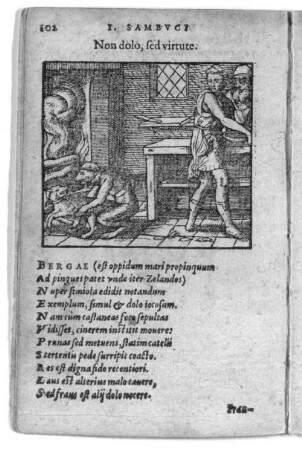 102 I. SAMBVCI
Non dolo, sed virtute.
BERGAE (est oppidum mari propinquum
Ad pingues patet vnde iter Zelandos)
Nuper simiola edidit notandum
Exemplum, simul & dolo iocosum.
Nam cùm castaneas foco sepultas
Vidisset, cinerem institit mouere:
Prunas sed metuens, statim catelli
Stertentis pede surripit coacto.
Res est digna fide recentiori.
Laus est alterius malo cauere,
Sed fraus est alij dolo nocere.